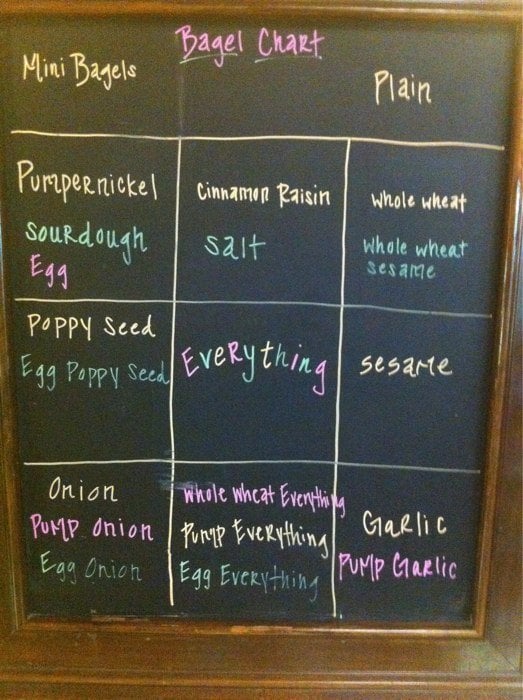 Bagel Chart
Mini Bagels
Plain
Pumpernickel
sourdough
Egg
Cinnamon Raisin
salt
whole wheat
whole wheat
sesame
Poppy Seed
Egg Poppy Seed
Everything
sesame
Onion
Pump Onion
Egg Onion
whole wheat Everything
Pump Everything
Egg Everything
Garlic
Pump Garlic